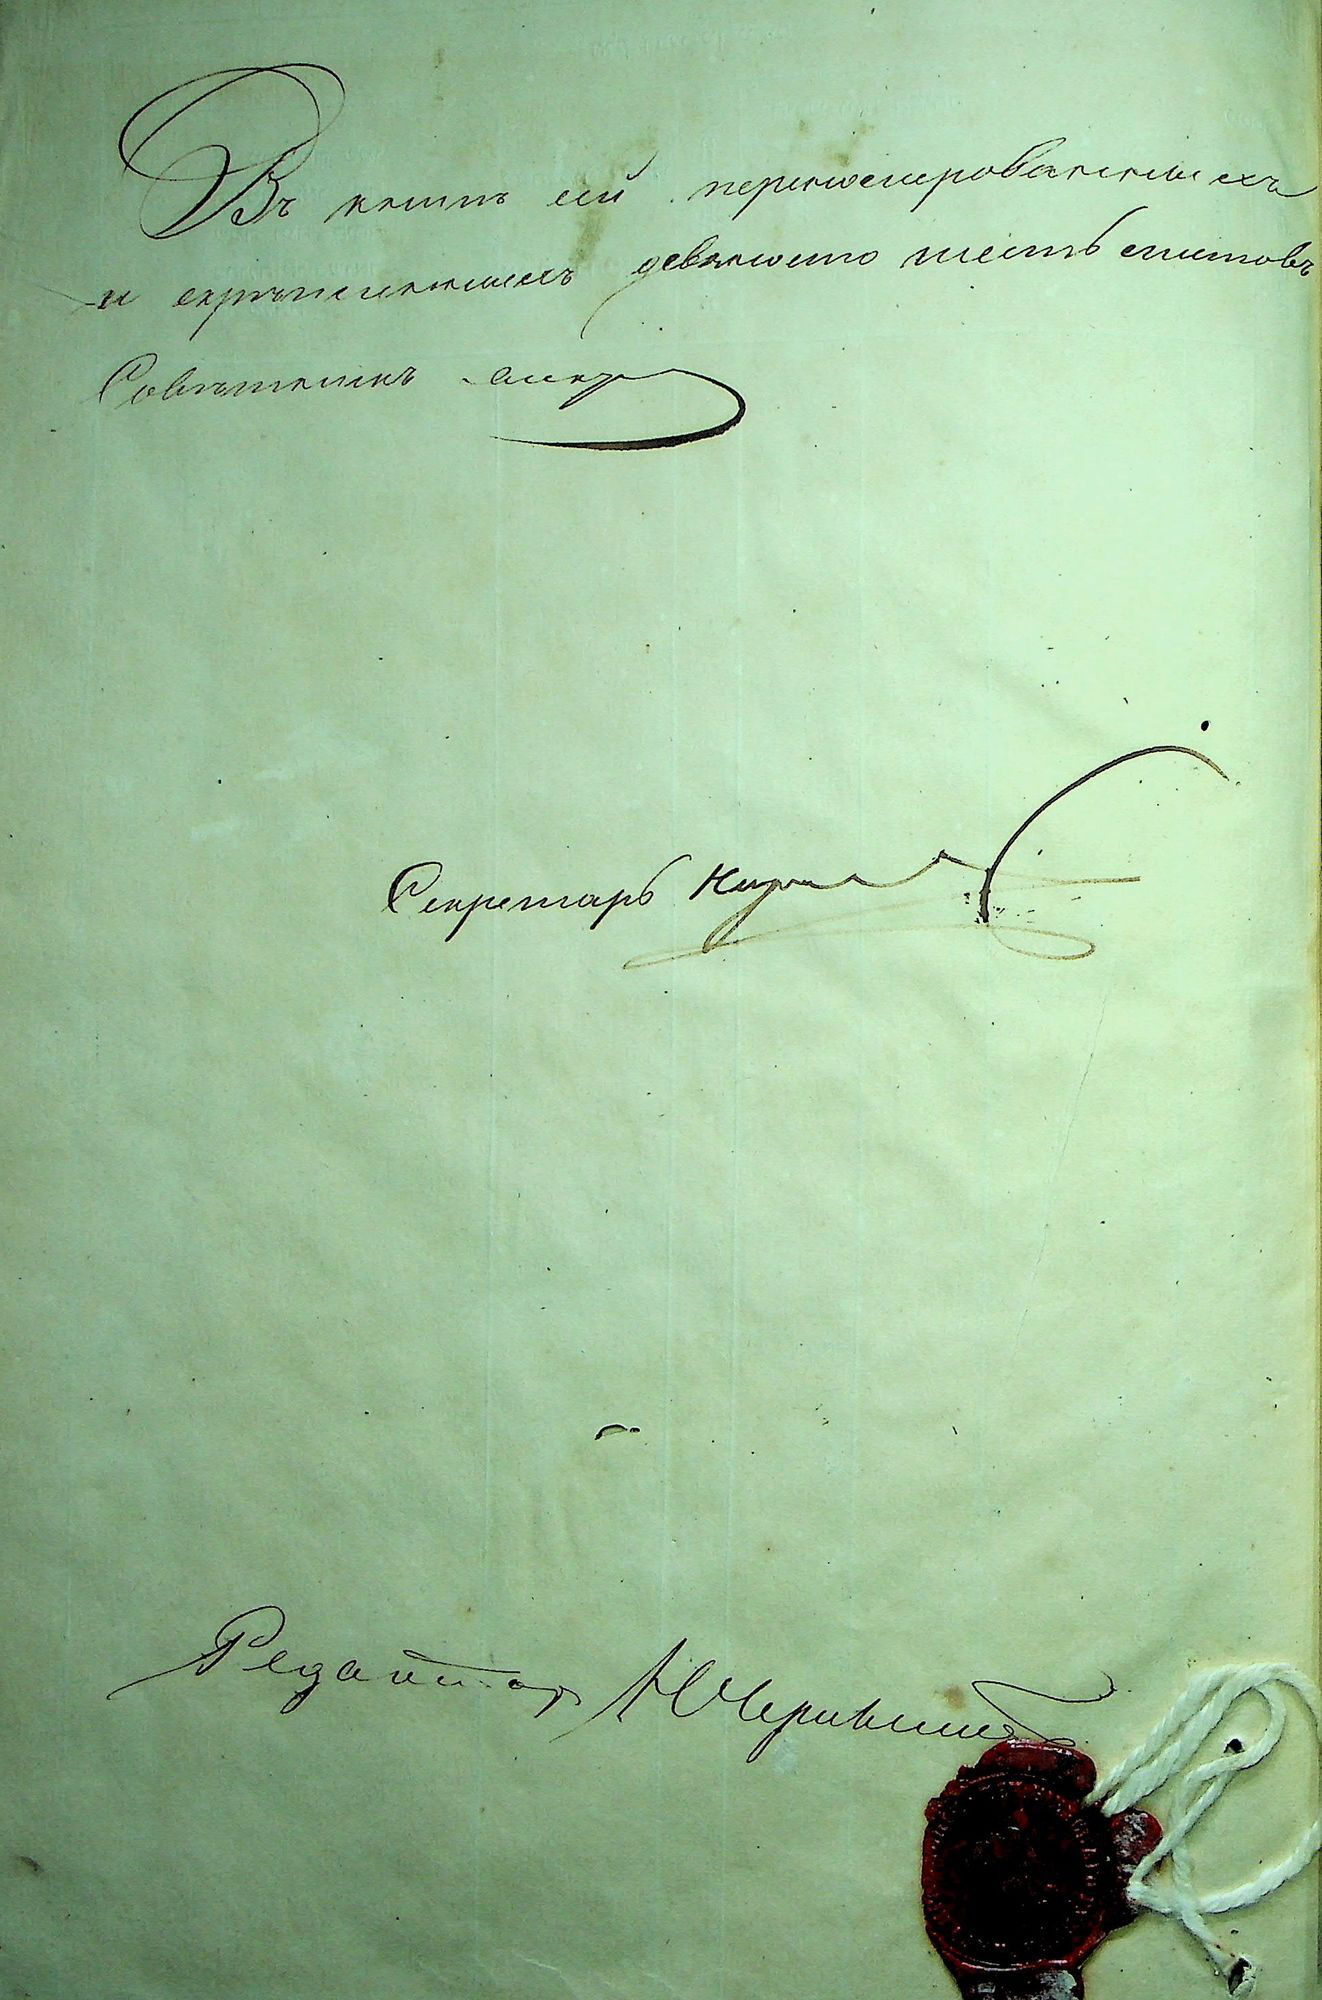 Въ книгѣ сей перенумерованныхъ
и скрѣпленныхъ девяносто шесть листовъ
Совѣтникъ
Секретарь
Редакторъ